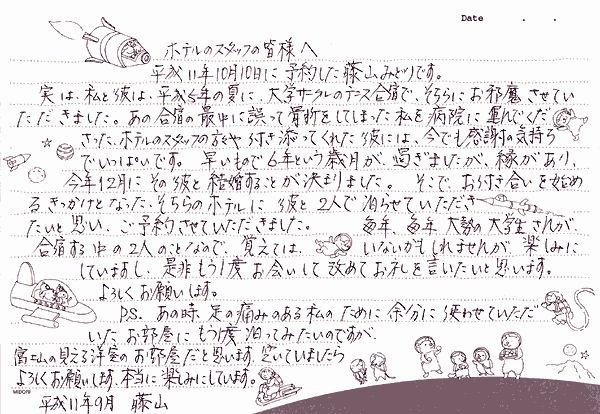 Date . .
ホテルのスタッフの皆様へ
平成11年10月10日に予約した藤山みどりです。
実は、私と彼は、平成5年の夏に、大学サークルのテニス合宿で、そちらにお邪魔させてい
ただきました。あの合宿の最中に誤って骨折をしてしまった私を病院に運んでくだ
さった、ホテルのスタッフの方々や付き添ってくれた彼には、今でも感謝の気持ち
でいっぱいです。早いもので6年という歳月が、過ぎましたが、縁があり、
今年12月にその彼と結婚することが決まりました。そこで、お付き合いを始め
るきっかけとなった、そちらのホテルに彼と2人で泊らせていただき
たいと思い、ご予約させていただきました。毎年、毎年、大勢の大学生さんが、
合宿する中の2人のことなので、覚えては、いないかもしれませんが、楽しみに
していますし、是非もう1度お会いして改めてお礼を言いたいと思います。
よろしくお願いします。
P.S. あの時、足の痛みのある私のために余分に使わせていただ
いた、お部屋にもう1度泊ってみたいのですが、
富士山の見える洋室のお部屋だと思います。空いていましたら
よろしくお願いします。本当に楽しみにしています。
MIDORI
平成11年9月 藤山